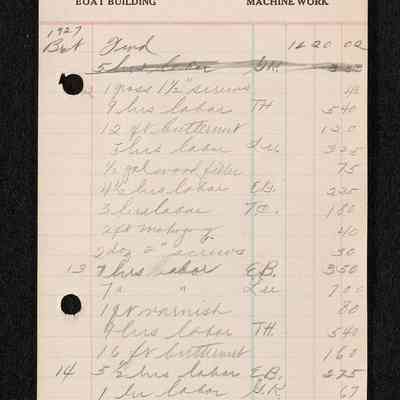 BOAT BUILDING MACHINE WORK
1927
Bot Fwd 1620 02
5 hrs labor G.K.
12 1 gross 1½" screws
9 hrs labor TH 540
12 ft butternut 120
5 hrs labor Lu 325
½ gal wood filler 75
4½ hrs labor E.B. 225
3 hrs labor 180
2 ft mahogany 40
2 doz 2" screws 30
13 7 hrs labor E.B. 350
7 " " Lu 700
1 qt varnish 80
9 hrs labor TH. 540
16 ft butternut 160
14 5½ hrs labor E.B. 275
1 hr labor G.K. 67